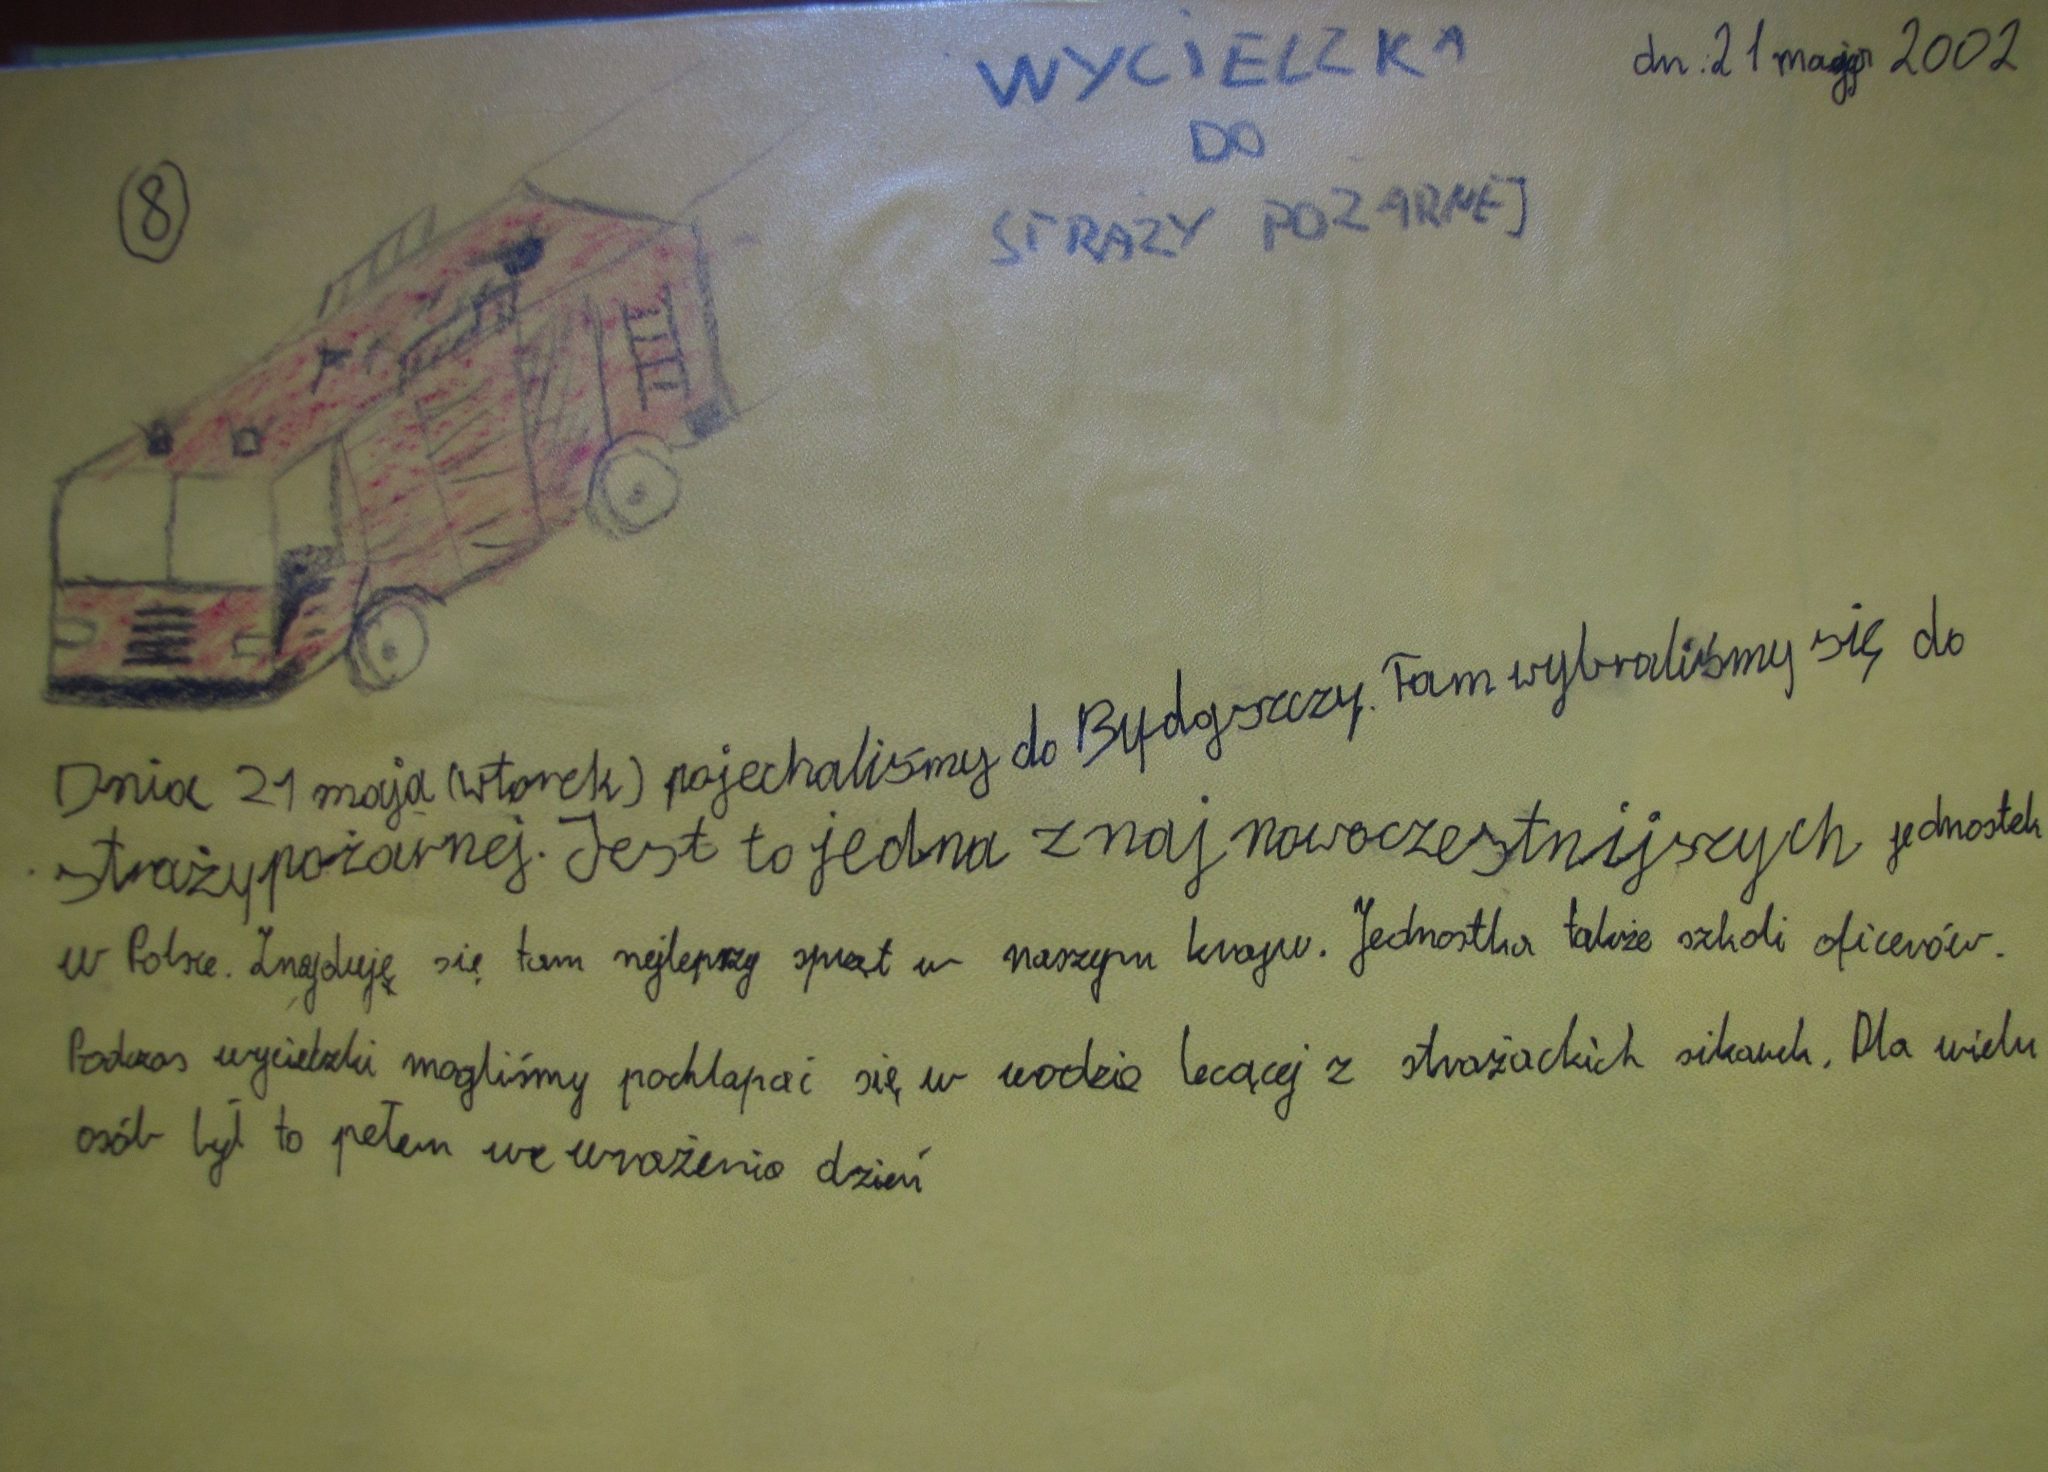 dn. 21 maja 2002
WYCIECZKA
DO
STRAŻY POŻARNEJ
8
Dnia 21 maja (wtorek) pojechaliśmy do Bydgszczy. Tam wybraliśmy się do
straży pożarnej. Jest to jedna z naj nowoczestnijszych jednostek
w Polsce. Znajduję się tam nejlepszy spręt w naszym kraju. Jednostka także szkoli oficerów.
Podczas wycieczki mogliśmy pochlapać się w wodzie lecącej z strażackich sikawek. Dla wielu
osób był to pełem we wrażenia dzień